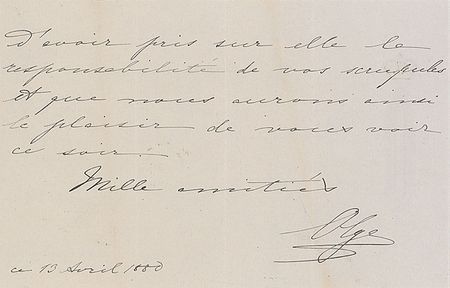 d'avoir pris sur elle la
responsabilité de vos scrupules
et que nous aurons ainsi
le plaisir de vous voir
ce soir.
Mille amitiés
Olga
ce 13 Avril 1880